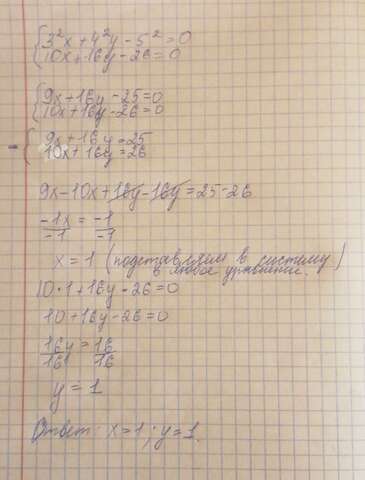 {3²x+4²y-5²=0
10x+16y-26=0
{9x+16y-25=0
10x+16y-26=0
-{9x+16y=25
10x+16y=26
9x-10x+16y-16y=25-26
-1x/-1 = -1/-1
x=1 (подставляем в систему)
в любое уравнение.
10·1+16y-26=0
10+16y-26=0
16y/16=16/16
y=1
Ответ: x=1; y=1.